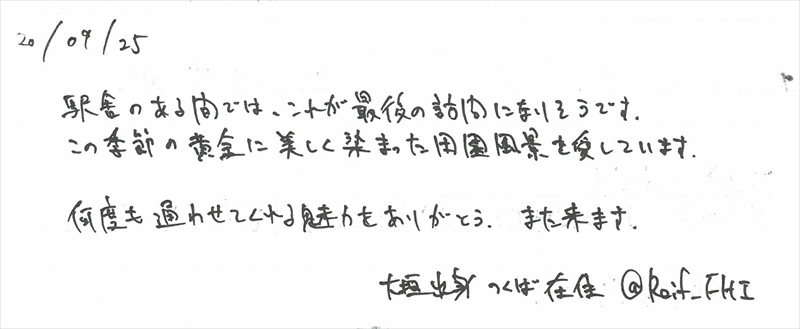 20/09/25
駅舎のある間では、これが最後の訪問になりそうです.
この季節の黄金に美しく染まった田園風景を愛しています.
何度も通わせてくれる魅力をありがとう. また来ます.
大垣出身 つくば在住 @Reif_FHI